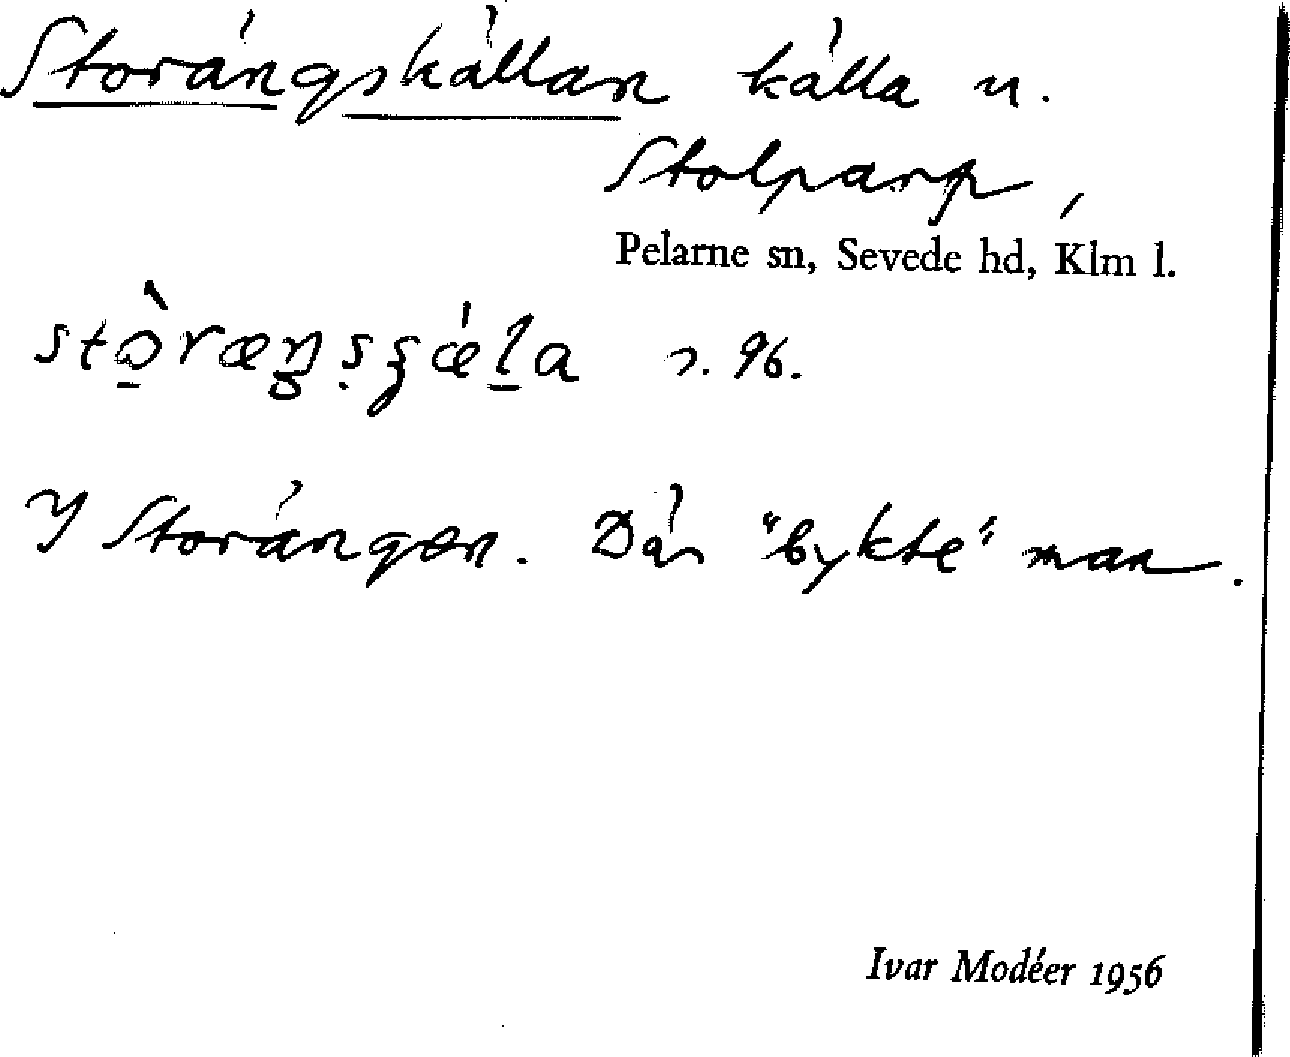 Storängskällan källa u.
Stolparp,
Pelarne sn, Sevede hd, Klm l.
s. 96.
I Storängen. Där "bykte" man.
Ivar Modéer 1956